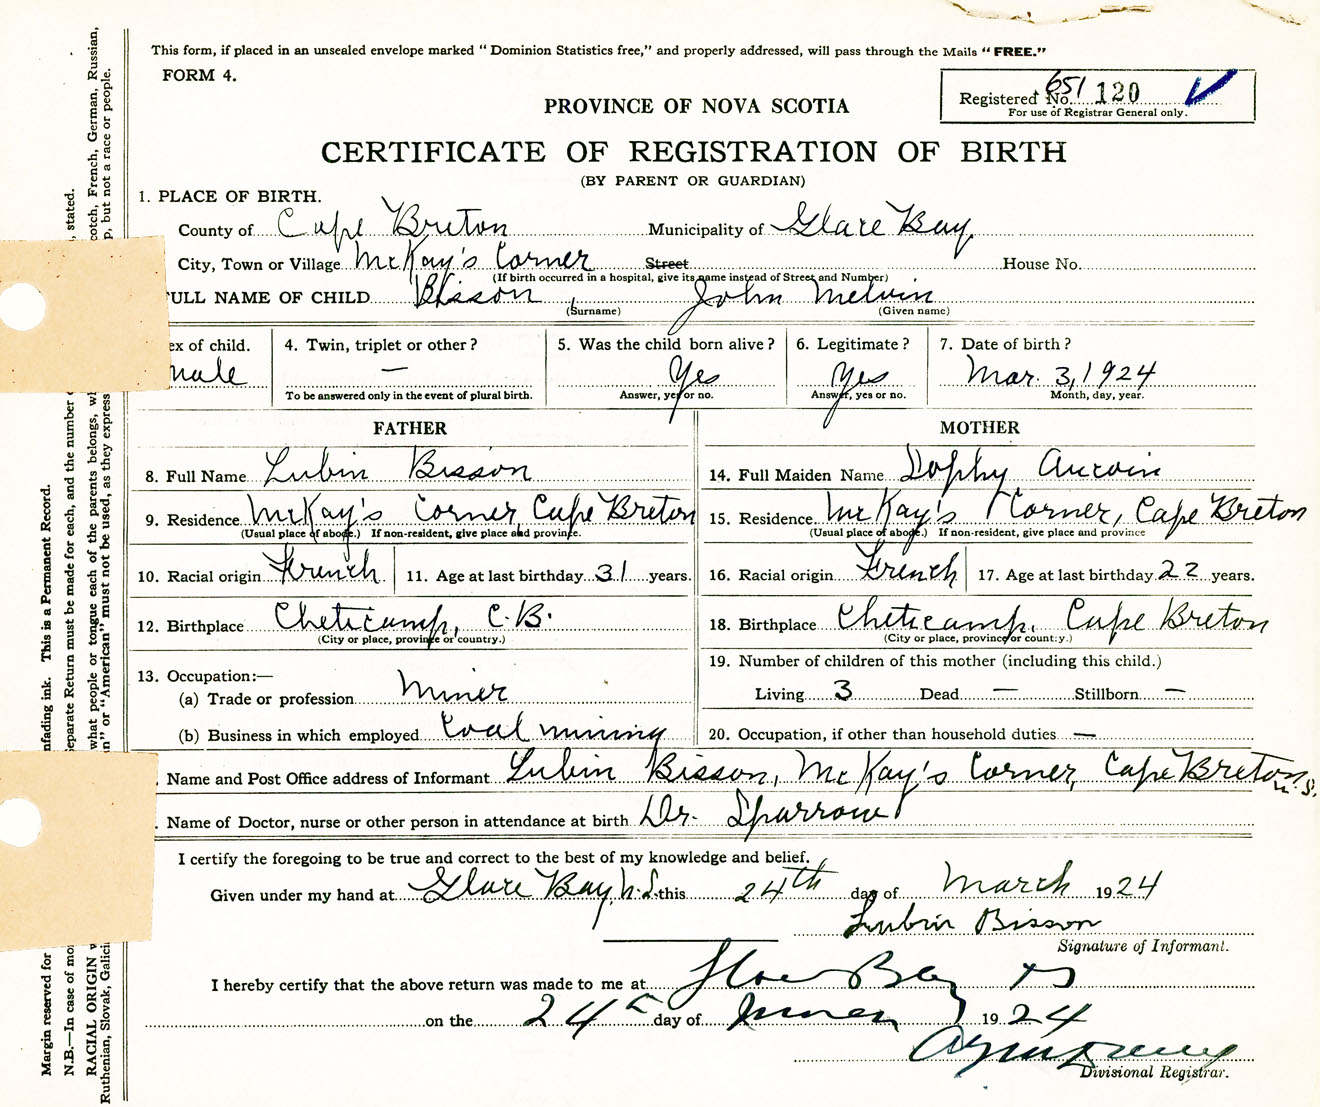 This form, if placed in an unsealed envelope marked "Dominion Statistics free," and properly addressed, will pass through the Mails "FREE."
FORM 4.
Registered No. 651 120
For use of Registrar General only.
PROVINCE OF NOVA SCOTIA
CERTIFICATE OF REGISTRATION OF BIRTH
(BY PARENT OR GUARDIAN)
1. PLACE OF BIRTH.
County of Cape Breton Municipality of Glace Bay
City, Town or Village McKay's Corner Street House No.
(If birth occurred in a hospital, give its name instead of Street and Number)
FULL NAME OF CHILD Bisson, John Melvin
(Surname) (Given name)
ex of child. 4. Twin, triplet or other? 5. Was the child born alive? 6. Legitimate? 7. Date of birth?
male — Yes Yes Mar. 3, 1924
To be answered only in the event of plural birth. Answer, yes or no. Answer, yes or no. Month, day, year.
FATHER MOTHER
8. Full Name Lubin Bisson 14. Full Maiden Name Sophy Aucoin
9. Residence McKay's Corner, Cape Breton 15. Residence McKay's Corner, Cape Breton
(Usual place of abode.) If non-resident, give place and province. (Usual place of abode.) If non-resident, give place and province
10. Racial origin French 11. Age at last birthday 31 years. 16. Racial origin French 17. Age at last birthday 22 years.
12. Birthplace Cheticamp, C.B. 18. Birthplace Cheticamp, Cape Breton
(City or place, province or country.) (City or place, province or country.)
19. Number of children of this mother (including this child.)
13. Occupation:—
(a) Trade or profession Miner Living 3 Dead — Stillborn —
(b) Business in which employed Coal mining 20. Occupation, if other than household duties —
. Name and Post Office address of Informant Lubin Bisson, McKay's Corner, Cape Breton, N.S.
. Name of Doctor, nurse or other person in attendance at birth Dr. Sparrow
I certify the foregoing to be true and correct to the best of my knowledge and belief.
Given under my hand at Glace Bay, N.S. this 24th day of March 1924
Lubin Bisson
Signature of Informant.
I hereby certify that the above return was made to me at Glace Bay NS
on the 24 day of March 1924
Divisional Registrar.
Margin reserved for
nfading ink. This is a Permanent Record.
N.B.—In case of mo
eparate Return must be made for each, and the number o
, stated.
RACIAL ORIGIN w
what people or tongue each of the parents belongs, wh
cotch, French, German, Russian,
Ruthenian, Slovak, Galici
n" or "American" must not be used, as they express
p, but not a race or people.